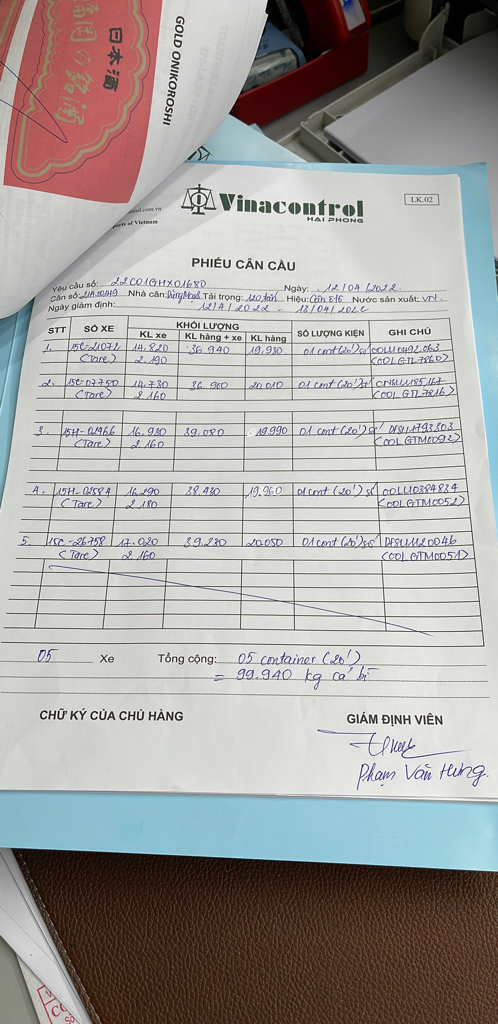 GOLD ONIKOROSHI
日本酒
Vinacontrol
HAI PHONG
LK.02
PHIẾU CÂN CẦU
Yêu cầu số: 22C01GHX01680 Ngày: 12/04/2022
Cân số: Nhà cân: Tải trọng: 120 tấn Hiệu: Nước sản xuất: VN
Ngày giám định: 12/4/2022
STT SỐ XE KHỐI LƯỢNG SỐ LƯỢNG KIỆN GHI CHÚ
KL xe KL hàng + xe KL hàng
1. 15C-21072 14.820 36.940 19.930 01 cont (20') số
(Tare) 2.190 (OOLGTL7860)
2. 15C-07750 14.730 36.900 20.010 01 cont (20') số
(Tare) 2.160 (OOLGTL7816)
3. 15H-02466 16.930 39.080 19.990 01 cont (20') số DFSU1793303
(Tare) 2.160 (OOLGTM0092)
4. 15H-02584 16.290 38.430 19.960 01 cont (20') số OOLU0384834
(Tare) 2.180 (OOLGTM0052)
5. 15C-26758 17.020 39.230 20.050 01 cont (20') số DFSU1120046
(Tare) 2.160 (OOLGTM0051)
05 Xe Tổng cộng: 05 container (20')
= 99.940 kg cả bì
CHỮ KÝ CỦA CHỦ HÀNG GIÁM ĐỊNH VIÊN
Phạm Văn Hưng.